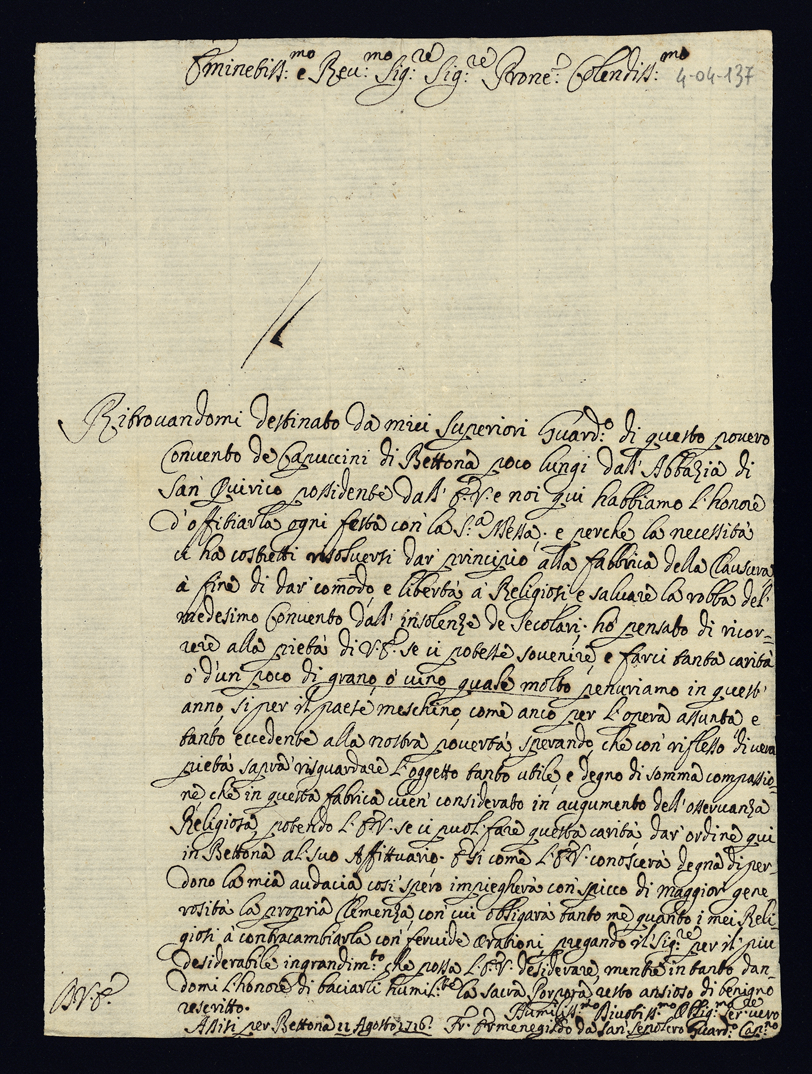 Eminetiss:mo e Reu:mo Sig:re Sig:re Prone: Colendiss:mo
4-04-137
Ritrouandomi destinato da miei Superiori Guard:o di questo pouero
Conuento de Capuccini di Bettona poco lungi dall' Abbazia di
San Quirico possidente dall' E:V: e noi qui habbiamo l'honore
d'offitiarla ogni festa con la S:a Messa; e perche la necessità
ci ha costretti risoluersi dar' principio alla fabbrica della Clausura
à fine di dar' comodo, e libertà à Religiosi e saluare la robba del
medesimo Conuento dall' insolenze de Secolari; ho' pensato di ricor-
rere alla pietà di V:E: se ci potesse souenire, e farci tanta carità
ò d'un poco di grano, ò uino quale molto penuriamo in quest'
anno si per il paese meschino, come anco per l'opera assunta e
tanto eccedente alla nostra pouertà sperando, che con' riflesso di uera
pietà saprà risguardare l'oggetto tanto utile, e degno di somma compassio-
ne che in questa fabrica uien' considerato in augumento dell'osseruanza
Religiosa, potendo l'E:V: se ci puol fare questa carità dar' ordine qui
in Bettona al suo Affittuario. E si come l'E:V: conoscerà degna di per-
dono la mia audacia così spero impiegherà con' spicco di maggior gene
rosità la propria Clemenza, con cui obligarà tanto me quanto i mei Reli-
giosi à contracambiarla con' feruide Orationi pregando il Sig:re per il piu
desiderabile ingrandim:to che possa l'E:V: desiderare, mentre in tanto dan-
domi l'honore di baciarli humil:te la sacra Porpora resto ansioso di benigno
rescritto.
D V:E:
Humiliss:mo Diuotiss:mo Oblig:mo Ser:re uero
Assisi per Bettona 11 Agosto 1716. Fr. Ermenegildo da San Sepolcro Guard:o Cap:no